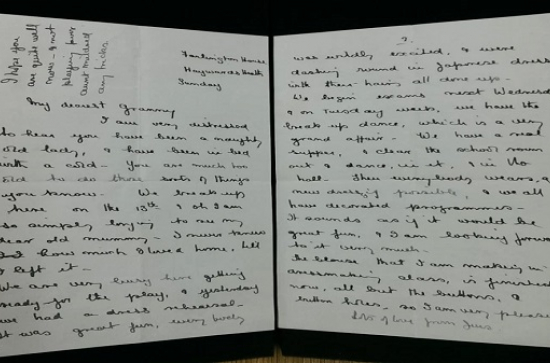 I hope you
are quite well
now - & not
playing
Aunt Mildred
any tricks.
Farlington House
Haywards Heath
Sunday
My dearest Granny
I am very distressed
to hear you have been a naughty
old lady, & have been in bed
with a cold - You are much too
old to do those sorts of things
you know - We break up
here on the 13th & oh I am
so simply longing to see my
dear old mummy - I never knew
just how much I loved home, till
I left it -
We are very busy here getting
ready for the play, & yesterday
we had a dress rehearsal -
It was great fun, every body
2.
was wildly excited, & were
dashing round in Japanese dress
with their hair all done up -
We begin exams next Wednesday
& on Tuesday week, we have the
break up dance, which is a very
grand affair - We have a real
supper, & clear the school room
out & dance, in it, & in the
hall - Then everybody wears, a
new dress, if possible, & we all
have decorated programmes -
It sounds as if it would be
great fun, & I am looking forward
to it very much -
The blouse that I am making in
dressmaking class, is finished
now, all but the buttons, &
button holes - so I am very pleased
Lots of love from